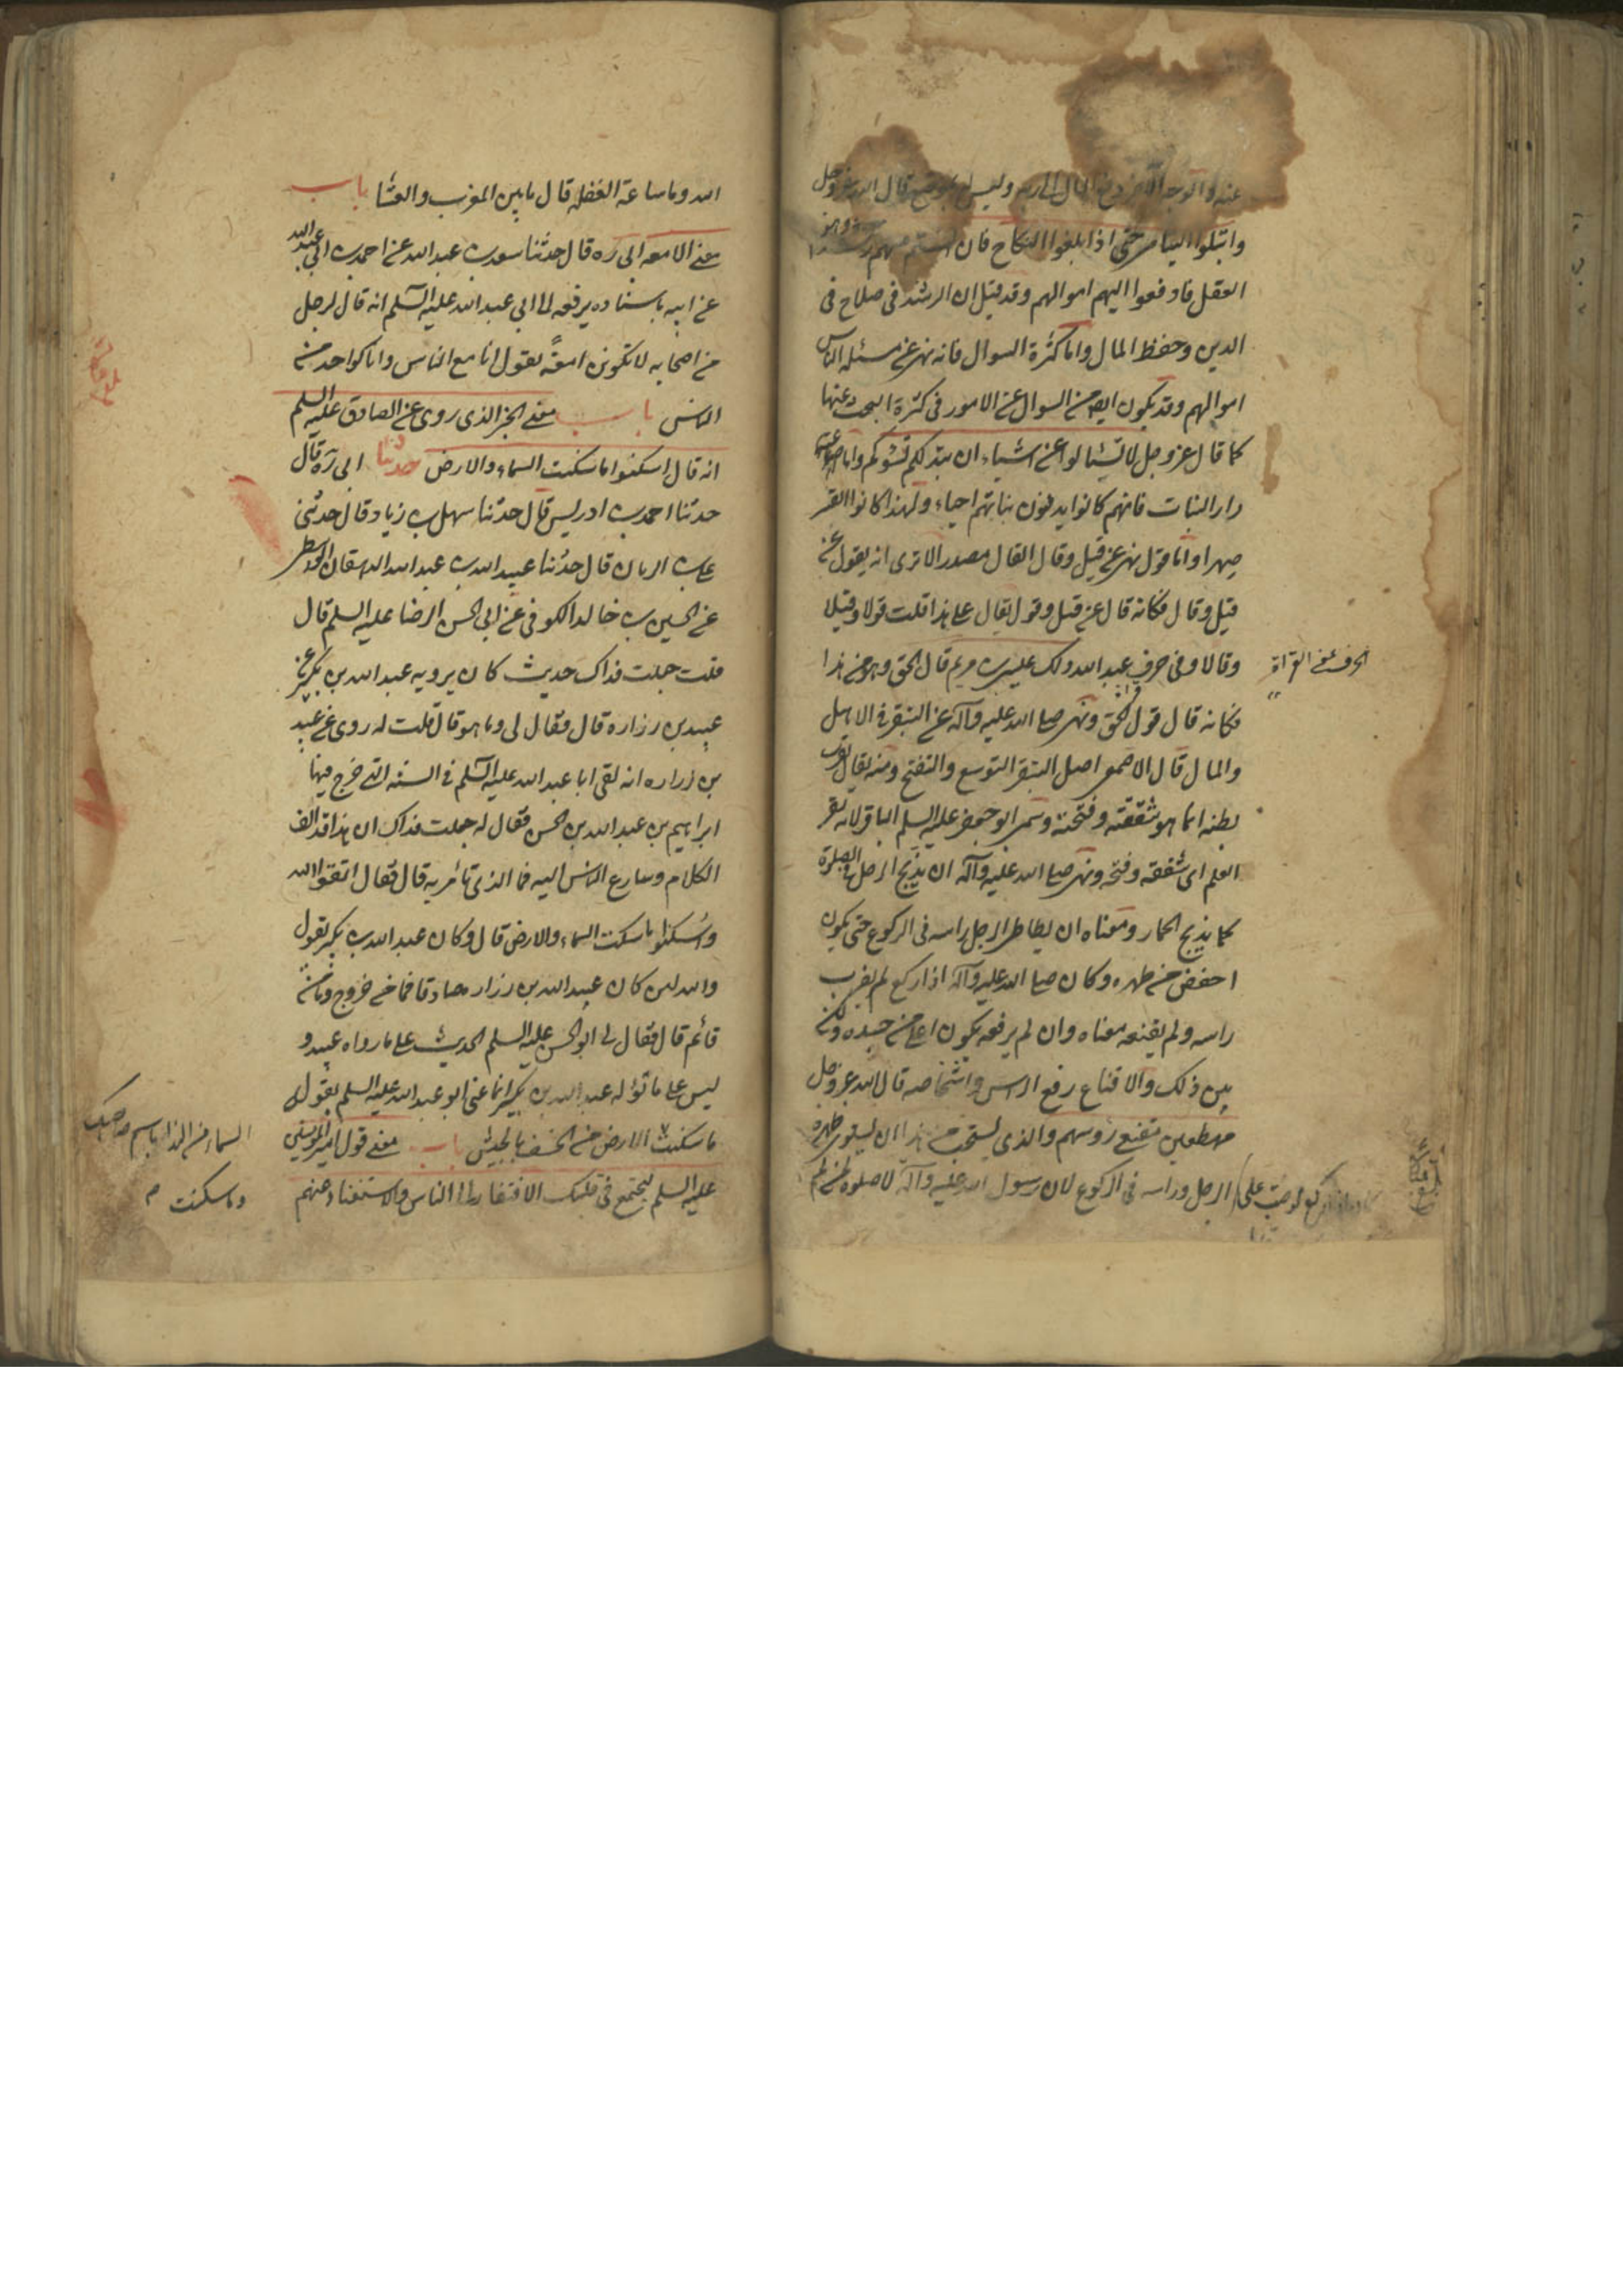 عنه والوجه الآخر دفع المال الى ربه وليس له بموضع قال الله عز وجل
وابتلوا اليتامى حتى اذا بلغوا النكاح فان آنستم منهم رشدا وهو
العقل فادفعوا اليهم اموالهم وقد قيل ان الرشد فى صلاح فى
الدين وحفظ المال واما كثرة السوال فانه نهى عن مسئلة الناس
اموالهم وقد يكون ايضا من السوال عن الامور فى كثرة البحث عنها
كما قال عز وجل لا تسئالوا عن اشياء ان تبد لكم تسؤكم واما
دار البنات فانهم كانوا يدفنون بناتهم احياء ولهذا كانوا القبر
صهرا واما قول نهى عن قيل وقال القال مصدر الا ترى انه يقول عن
قيل وقال فكانه قال عن قيل وقول يقال على هذا قلت قولا وقيلا
وقالا وفى حرف عبد الله ذلك عيسى بن مريم قال الحق وهو من هذا
الحرف معنى القراة
فكانه قال قول الحق ونهى صلى الله عليه وآله عن التبقر فى الاهل
والمال قال الاصمعى اصل التبقر التوسع والتفتح ومنه يقال بقرت
بطنه انما هو شققته وفتحته وسمى ابو جعفر عليه السلم الباقر لانه بقر
العلم اى شققه وفتحه ونهى صلى الله عليه وآله ان يذبح الرجل فى الصلوة
كما يذبح الحمار ومعناه ان يطاطى الرجل راسه فى الركوع حتى يكون
اخفض من ظهره وكان صلى الله عليه وآله اذا ركع لم يضرب
راسه ولم يقنعه معناه وان لم يرفعه يكون اعلى من جسده ولكن
بين ذلك والاقناع رفع الراس واشخاصه قال الله عز وجل
مهطعين مقنعى رؤسهم والذى يستحب من هذا ان يستوى ظهره
الرجل وراسه فى الركوع لان رسول الله عليه وآله لا صلوة لمن لم
الله وما ساعة الغفلة قال ما بين المغرب والعشا باب
معنى الامعه ابى ره قال حدثنا سعد بن عبد الله عن احمد بن ابى عبد الله
عن ابيه باسناده يرفعه الى ابى عبد الله عليه السلم انه قال لرجل
من اصحابه لا تكونن امعة يقول انا مع الناس وانا كواحد من
الناس باب معنى الخبر الذى روى عن الصادق عليه السلم
انه قال اسكنوا ما سكنت السماء والارض حدثنا ابى ره قال
حدثنا احمد بن ادريس قال حدثنا سهل بن زياد قال حدثنى
على بن الريان قال حدثنا عبيد الله بن عبد الله الدهقان الواسطى
عن الحسين بن خالد الكوفى عن ابى الحسن الرضا عليه السلم قال
قلت جعلت فداك حديث كان يرويه عبد الله بن بكير عن
عبيد بن زراره قال فقال لى وما هو قال قلت له روى عن عبيد
بن زراره انه لقى ابا عبد الله عليه السلم فى السنة التى خرج فيها
ابراهيم بن عبد الله بن الحسن فقال له جعلت فداك ان هذا قد الف
الكلام وسارع الناس اليه فما الذى تامر به قال فقال اتقوا الله
واسكنوا ما سكنت السماء والارض قال وكان عبد الله بن بكير يقول
والله لئن كان عبيد الله بن زراره صادقا فما من خروج وما من
قائم قال فقال لى ابو الحسن عليه السلم الحديث على ما رواه عبيد و
ليس على ما تؤله عبد الله بن بكير انما عنى ابو عبد الله عليه السلم بقوله
ما سكنت الارض من الخسف بالجيش باب معنى قول امير المؤمنين
السماء من النداء باسم صاحبك
وما سكنت
عليه السلم ليجتمع فى قلبك الافتقار الى الناس والاستغناء عنهم